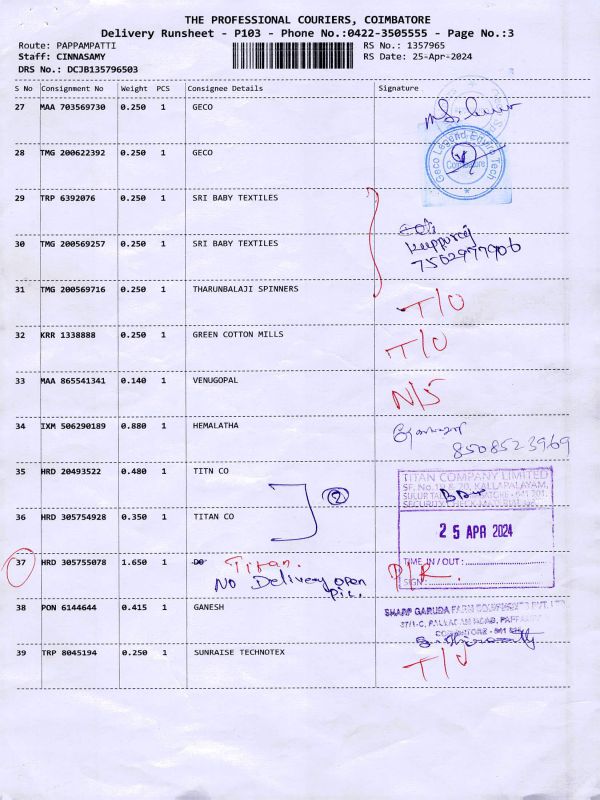 THE PROFESSIONAL COURIERS, COIMBATORE
Delivery Runsheet - P103 - Phone No.:0422-3505555 - Page No.:3
Route: PAPPAMPATTI RS No.: 1357965
Staff: CINNASAMY RS Date: 25-Apr-2024
DRS No.: DCJB135796503
S No Consignment No Weight PCS Consignee Details Signature
27 MAA 703569730 0.250 1 GECO
28 TMG 200622392 0.250 1 GECO
Geco Legend Enviro Tech
Coimbatore
29 TRP 6392076 0.250 1 SRI BABY TEXTILES
30 TMG 200569257 0.250 1 SRI BABY TEXTILES
Kupparaj
7502977906
31 TMG 200569716 0.250 1 THARUNBALAJI SPINNERS
T/O
32 KRR 1338888 0.250 1 GREEN COTTON MILLS
T/O
33 MAA 865541341 0.140 1 VENUGOPAL
N/S
34 IXM 506290189 0.880 1 HEMALATHA
8508523969
35 HRD 20493522 0.480 1 TITN CO
TITAN COMPANY LIMITED
2
36 HRD 305754928 0.350 1 TITAN CO
25 APR 2024
37 HRD 305755078 1.650 1 DO Titan.
TIME IN/OUT :
No Delivery open
D/R.
SIGN
38 PON 6144644 0.415 1 GANESH
SHARP GARUDA FARM
39 TRP 8045194 0.250 1 SUNRAISE TECHNOTEX